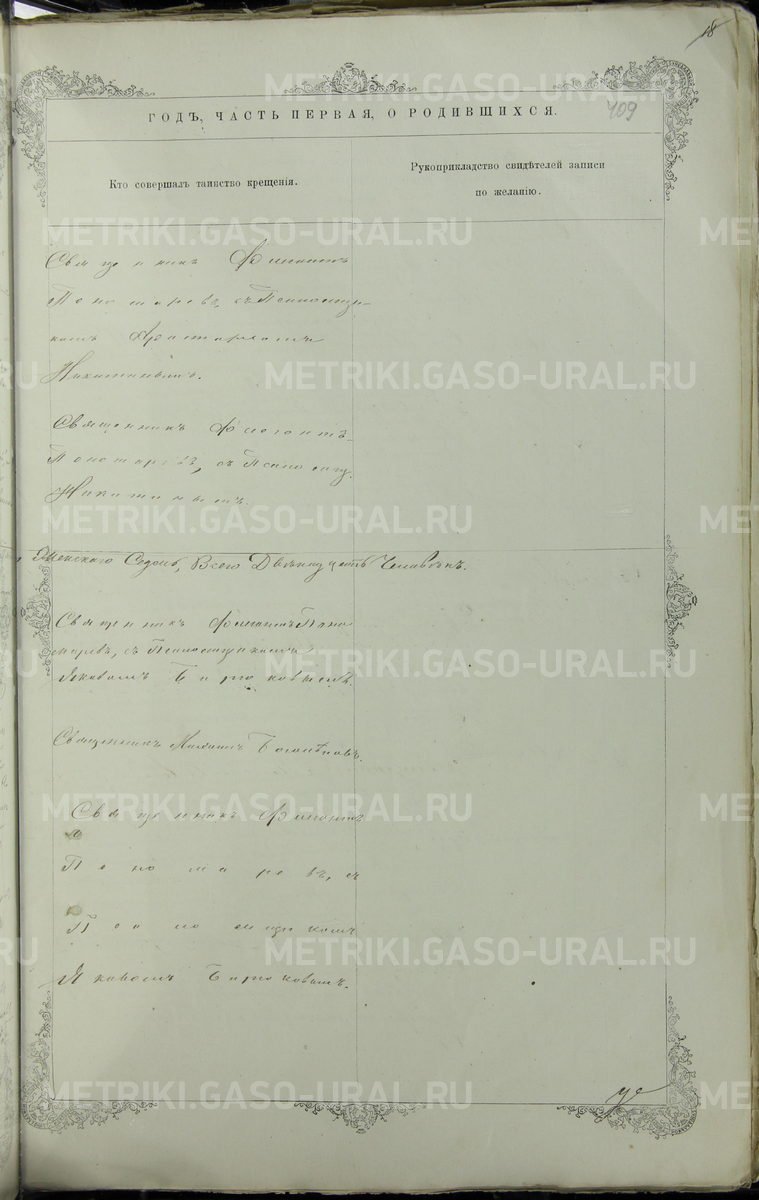 18
409
ГОДЪ, ЧАСТЬ ПЕРВАЯ, О РОДИВШИХСЯ.
Кто совершалъ таинство крещенія.
Рукоприкладство свидѣтелей записи
по желанію.
Священникъ Флегонтъ
Пономаревъ, съ Псаломщи-
комъ Аристархомъ
Никитинымъ.
Священникъ Флегонтъ
Пономаревъ, съ Псаломщ.
Никитинымъ.
Женскаго Всего Двѣнадцать Человѣкъ.
Священникъ Флегонтъ Поно
маревъ, съ Псаломщикомъ
Яковомъ Бирюковымъ.
Священникъ Михаилъ
Священникъ Флегонтъ
Пономаревъ, съ
Псаломщикомъ
Яковомъ Бирюковымъ.
METRIKI.GASO-URAL.RU